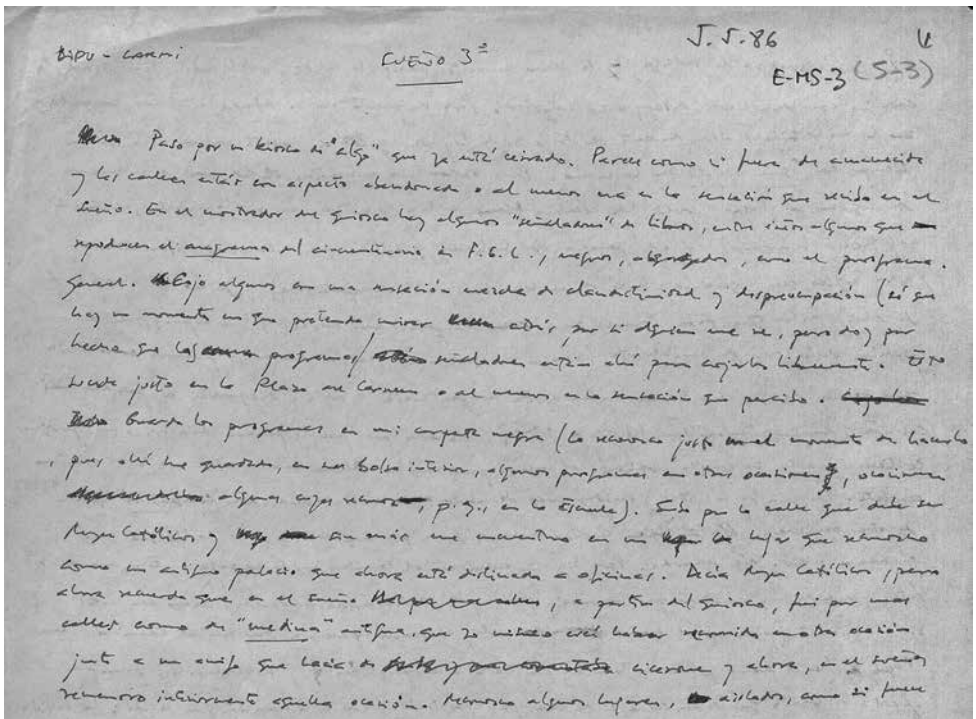 BIPU - CARMI
SUEÑO 3º
5.5.86
E-MS-3 (S-3)
Paso por un kiosco de "algo" que ya está cerrado. Parece como si fuera de amanecida
y las calles están con aspecto abandonado o al menos esa es la sensación que recibo en el
sueño. En el mostrador del quiosco hay algunos "señaladores" de libros, entre ellos algunos que
reproducen el anagrama del cincuentenario de F.G.L., negros, alargados, como el programa
general. Cojo algunos con una sensación mezcla de clandestinidad y despreocupación (sé que
hay un momento en que pretendo mirar atrás, por si alguien me ve, pero doy por
hecho que los programas/señaladores están ahí para cogerlos libremente. Esto
sucede justo en la Plaza del Carmen o al menos es la sensación que percibo.
Guardo los programas en mi carpeta negra (la reconozco justo en el momento de hacerlo
, pues ahí he guardado, en una bolsa interior, algunos programas en otras ocasiones, ocasiones
algunas cuyas, p. ej., en la Escuela). Subo por la calle que debe ser
Reyes Católicos y sin más me encuentro en un lugar que reconozco
como un antiguo palacio que ahora está destinado a oficinas. Decía Reyes Católicos, pero
ahora recuerdo que en el sueño, a partir del quiosco, fui por unas
calles como de "medina" antigua, que yo mismo creí haber recorrido en otra ocasión
junto a un amigo que hacía de cicerone y ahora, en el sueño,
rememoro interiormente aquella ocasión. Reconozco algunos lugares, aislados, como si fuese